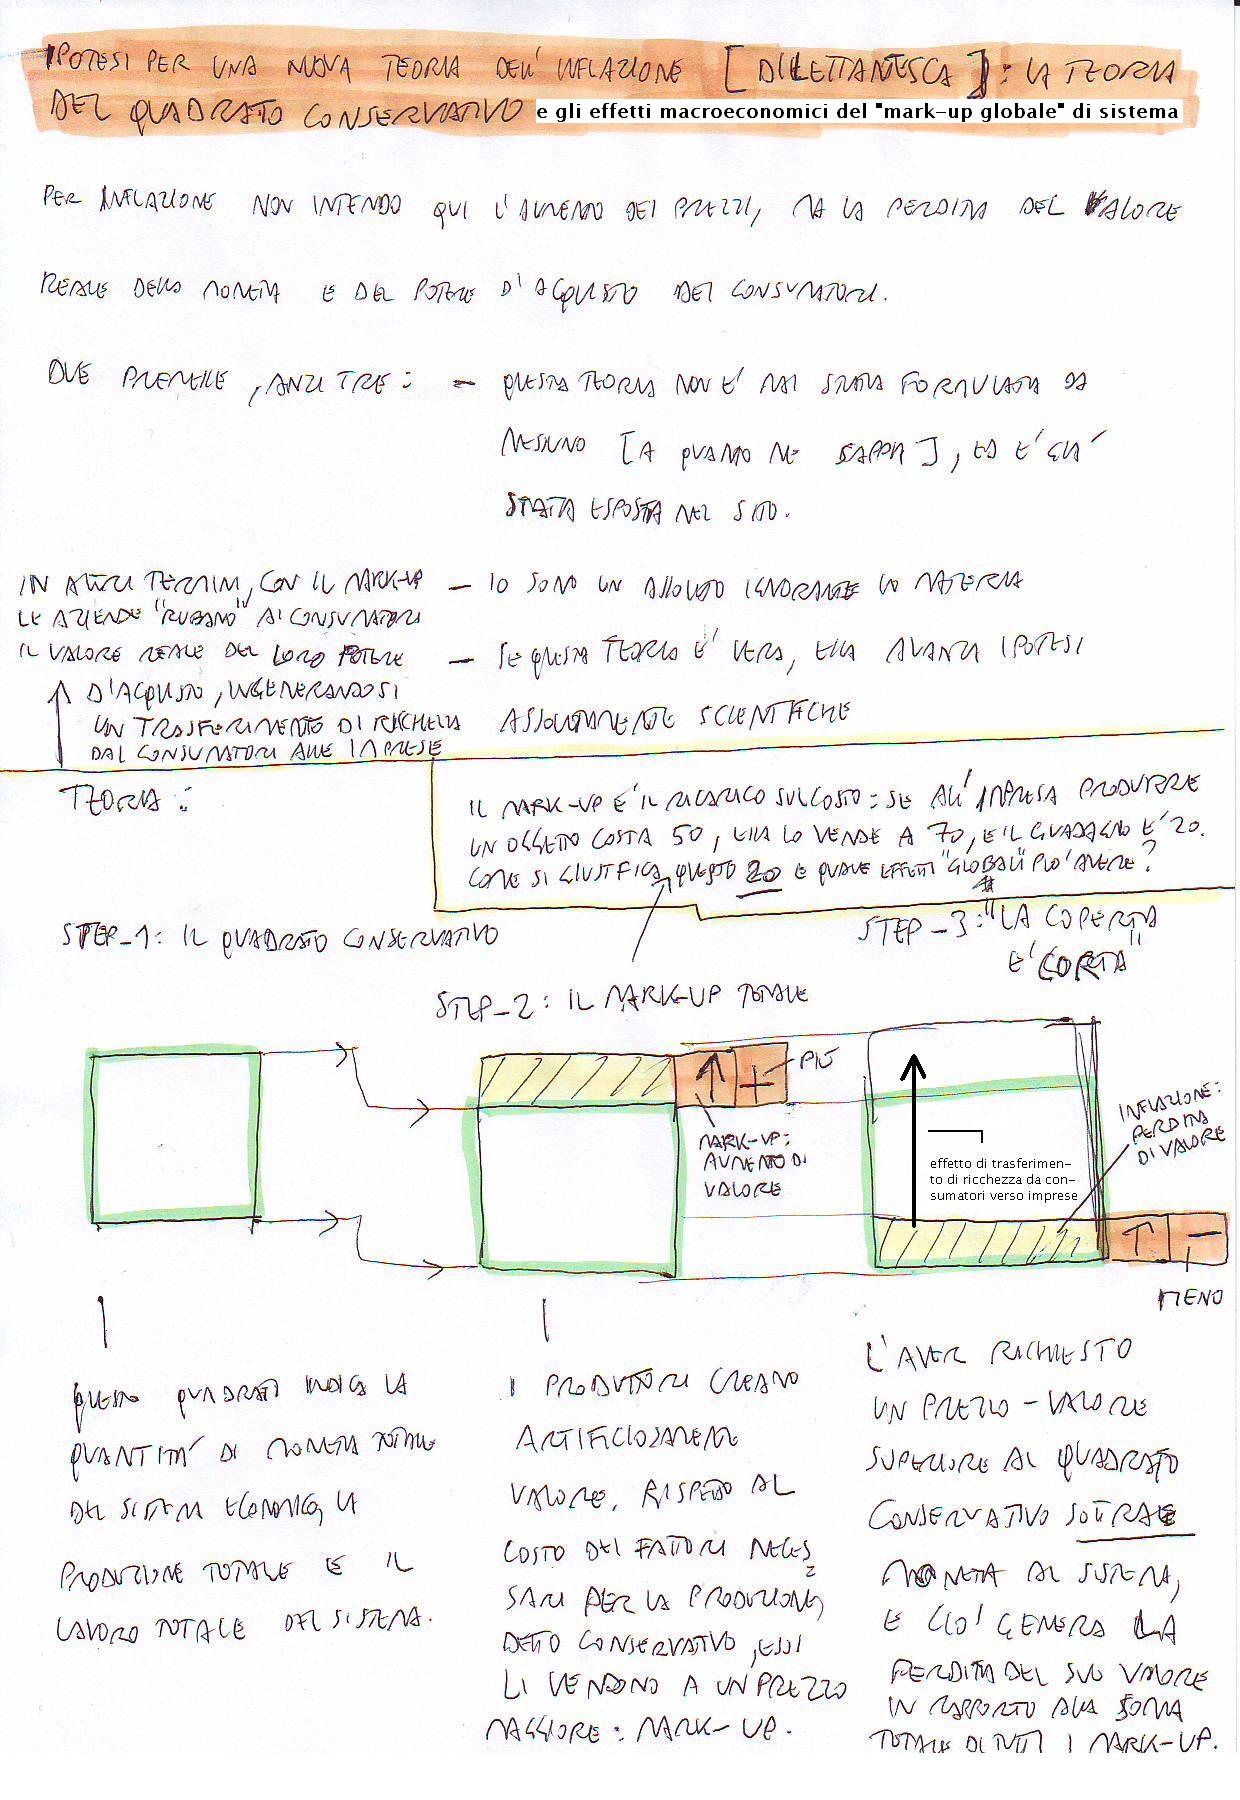 IPOTESI PER UNA NUOVA TEORIA DELL'INFLAZIONE [DILETTANTESCA]: LA TEORIA
DEL QUADRATO CONSERVATIVO e gli effetti macroeconomici del "mark-up globale" di sistema
PER INFLAZIONE NON INTENDO QUI L'AUMENTO DEI PREZZI, MA LA PERDITA DEL VALORE
REALE DELLA MONETA E DEL POTERE D'ACQUISTO DEI CONSUMATORI.
DUE PREMESSE, ANZI TRE: - QUESTA TEORIA NON E' MAI STATA FORMULATA DA
NESSUNO [A QUANTO NE SAPPIA], ED E' GIA'
STATA ESPOSTA NEL SITO.
- IO SONO UN ASSOLUTO IGNORANTE IN MATERIA
- SE QUESTA TEORIA E' VERA, ESSA AVANZA IPOTESI
ASSOLUTAMENTE SCIENTIFICHE
IN ALTRI TERMINI, CON IL MARK-UP
LE AZIENDE "RUBANO" AI CONSUMATORI
IL VALORE REALE DEL LORO POTERE
D'ACQUISTO, INGENERANDOSI
UN TRASFERIMENTO DI RICCHEZZA
DAI CONSUMATORI ALLE IMPRESE
TEORIA:
IL MARK-UP E' IL RICARICO SUL COSTO: SE ALL'IMPRESA PRODURRE
UN OGGETTO COSTA 50, ESSA LO VENDE A 70, E IL GUADAGNO E' 20.
COME SI GIUSTIFICA QUESTO 20 E QUALE EFFETTI "GLOBALI" PUO' AVERE?
STEP_1: IL QUADRATO CONSERVATIVO
STEP_2: IL MARK-UP TOTALE
STEP_3: "LA COPERTA
E' CORTA"
+
PIÙ
MARK-UP:
AUMENTO DI
VALORE
effetto di trasferimen-
to di ricchezza da con-
sumatori verso imprese
INFLAZIONE:
PERDITA
DI VALORE
-
MENO
QUESTO QUADRATO INDICA LA
QUANTITA' DI MONETA TOTALE
DEL SISTEMA ECONOMICO, LA
PRODUZIONE TOTALE E IL
LAVORO TOTALE DEL SISTEMA.
I PRODUTTORI CREANO
ARTIFICIOSAMENTE
VALORE, RISPETTO AL
COSTO DEI FATTORI NECES
SARI PER LA PRODUZIONE,
DETTO CONSERVATIVO, ESSI
LI VENDONO A UN PREZZO
MAGGIORE: MARK-UP.
L'AVER RICHIESTO
UN PREZZO-VALORE
SUPERIORE AL QUADRATO
CONSERVATIVO SOTTRAE
MONETA AL SISTEMA,
E CIO' GENERA LA
PERDITA DEL SUO VALORE
IN RAPPORTO ALLA SOMMA
TOTALE DI TUTTI I MARK-UP.